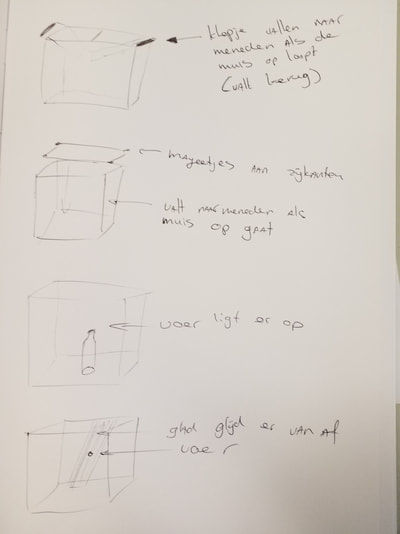 klepje vallen naar
meneden als de
muis op loopt
(valt terug)
mageetjes aan zijkanten
valt naar meneden als
muis op gaat
voer ligt er op
glad glijd er van af
voer